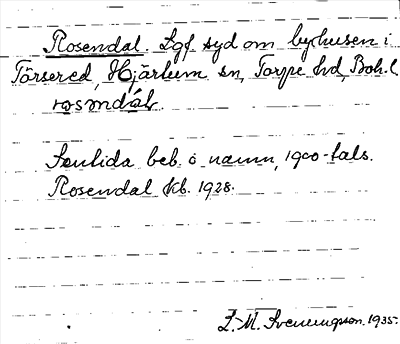 Rosendal. Lgf syd om byhusen i
Törsered, Hjärtum sn, Torpe hd, Boh. l.
rosəndα̂l
Sentida beb. o namn, 1900-tals.
Rosendal kb. 1928.
L. M. Svenungsson. 1935.